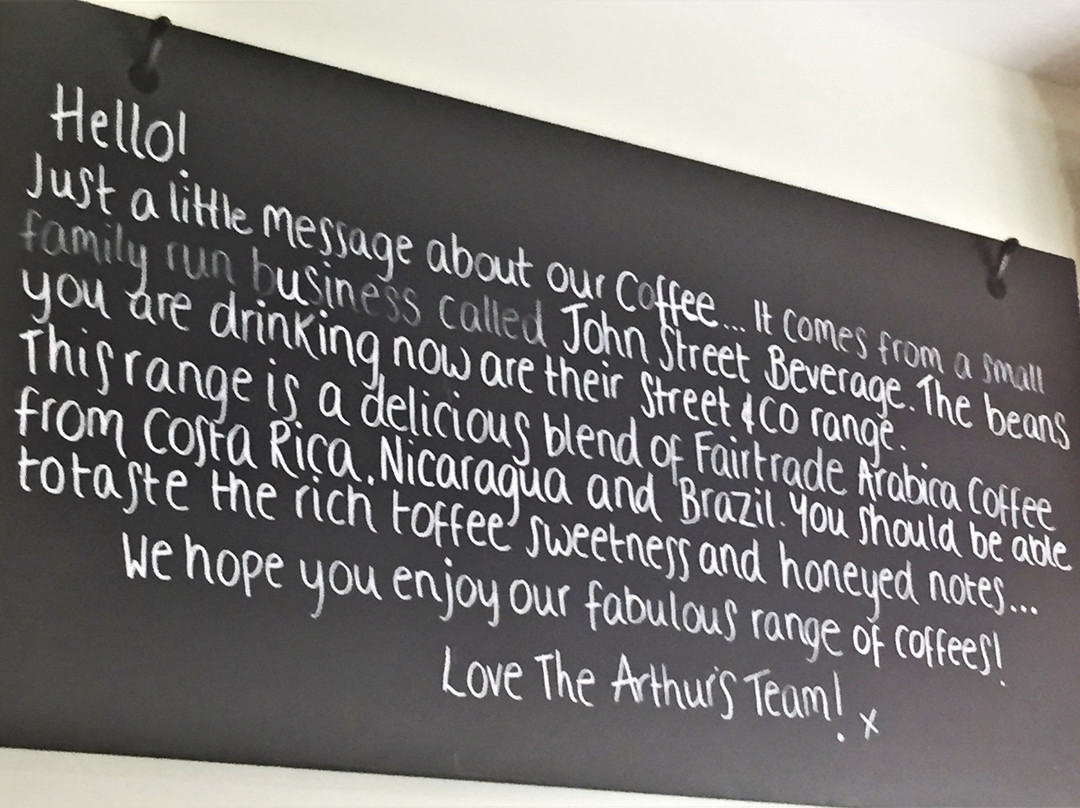 Hello!
Just a little message about our Coffee... It comes from a small
family run business called John Street Beverage. The beans
you are drinking now are their Street & Co range.
This range is a delicious blend of Fairtrade Arabica Coffee
from Costa Rica, Nicaragua and Brazil. You should be able
to taste the rich toffee sweetness and honeyed notes...
We hope you enjoy our fabulous range of coffees!
Love The Arthur's Team! x